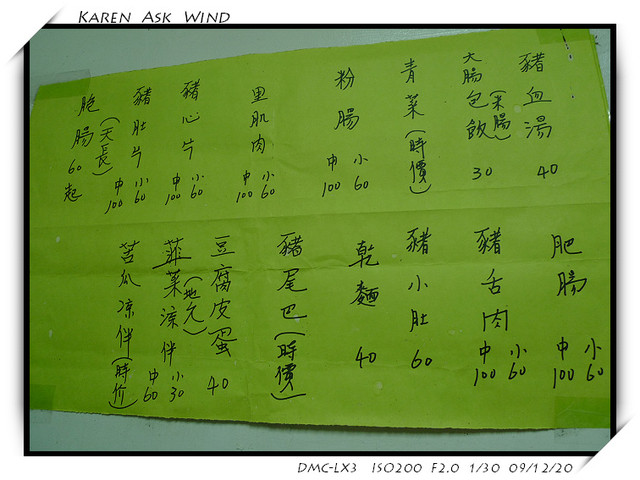 KAREN ASK WIND
豬血湯 40
大腸包飯(米腸) 30
青菜(時價)
粉腸 小60 中100
里肌肉 小60 中100
豬心片 小60 中100
豬肚片 小60 中100
脆腸(天長) 60起
肥腸 小60 中100
豬舌肉 小60 中100
豬小肚 60
乾麵 40
豬尾巴(時價)
豆腐皮蛋 40
韮菜凉伴 小30 中60
苦瓜凉伴(時价)
DMC-LX3 ISO200 F2.0 1/30 09/12/20